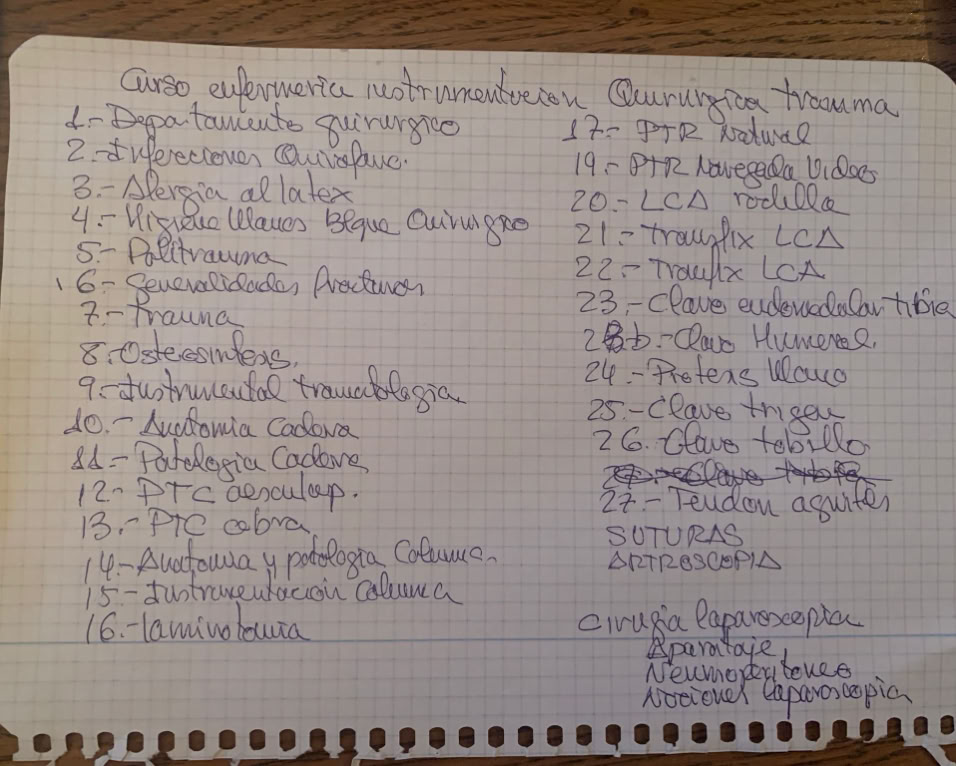 Curso enfermeria instrumentacion Quirurgica trauma
1.- Departamento quirurgico
2.- Infecciones Quirofano.
3.- Alergia al latex
4.- Higiene Manos Bloque Quirurgico
5.- Politrauma
6.- Generalidades fracturas
7.- trauma
8.- Osteosintesis.
9.- Instrumental traumatologia
10.- Anatomia Cadera
11.- Patologia Cadera
12.- PTC aesculap.
13.- PTC cobra
14.- Anatomia y patologia Columna.
15.- Instrumentación Columna
16.- laminotomia
17.- PTR Natural
19.- PTR Navegada Videos
20.- LCA rodilla
21.- Transfix LCA
22.- Tranfix LCA
23.- Clavo endomedular tibia
23b.- Clavo Humeral.
24.- Protesis Mano
25.- Clavo trigen
26. Clavo tobillo
27.- Tendon aquiles
SUTURAS
ARTROSCOPIA
Cirugia laparoscopia
Aparataje,
Neumoperitoneo
Nociones laparoscopia